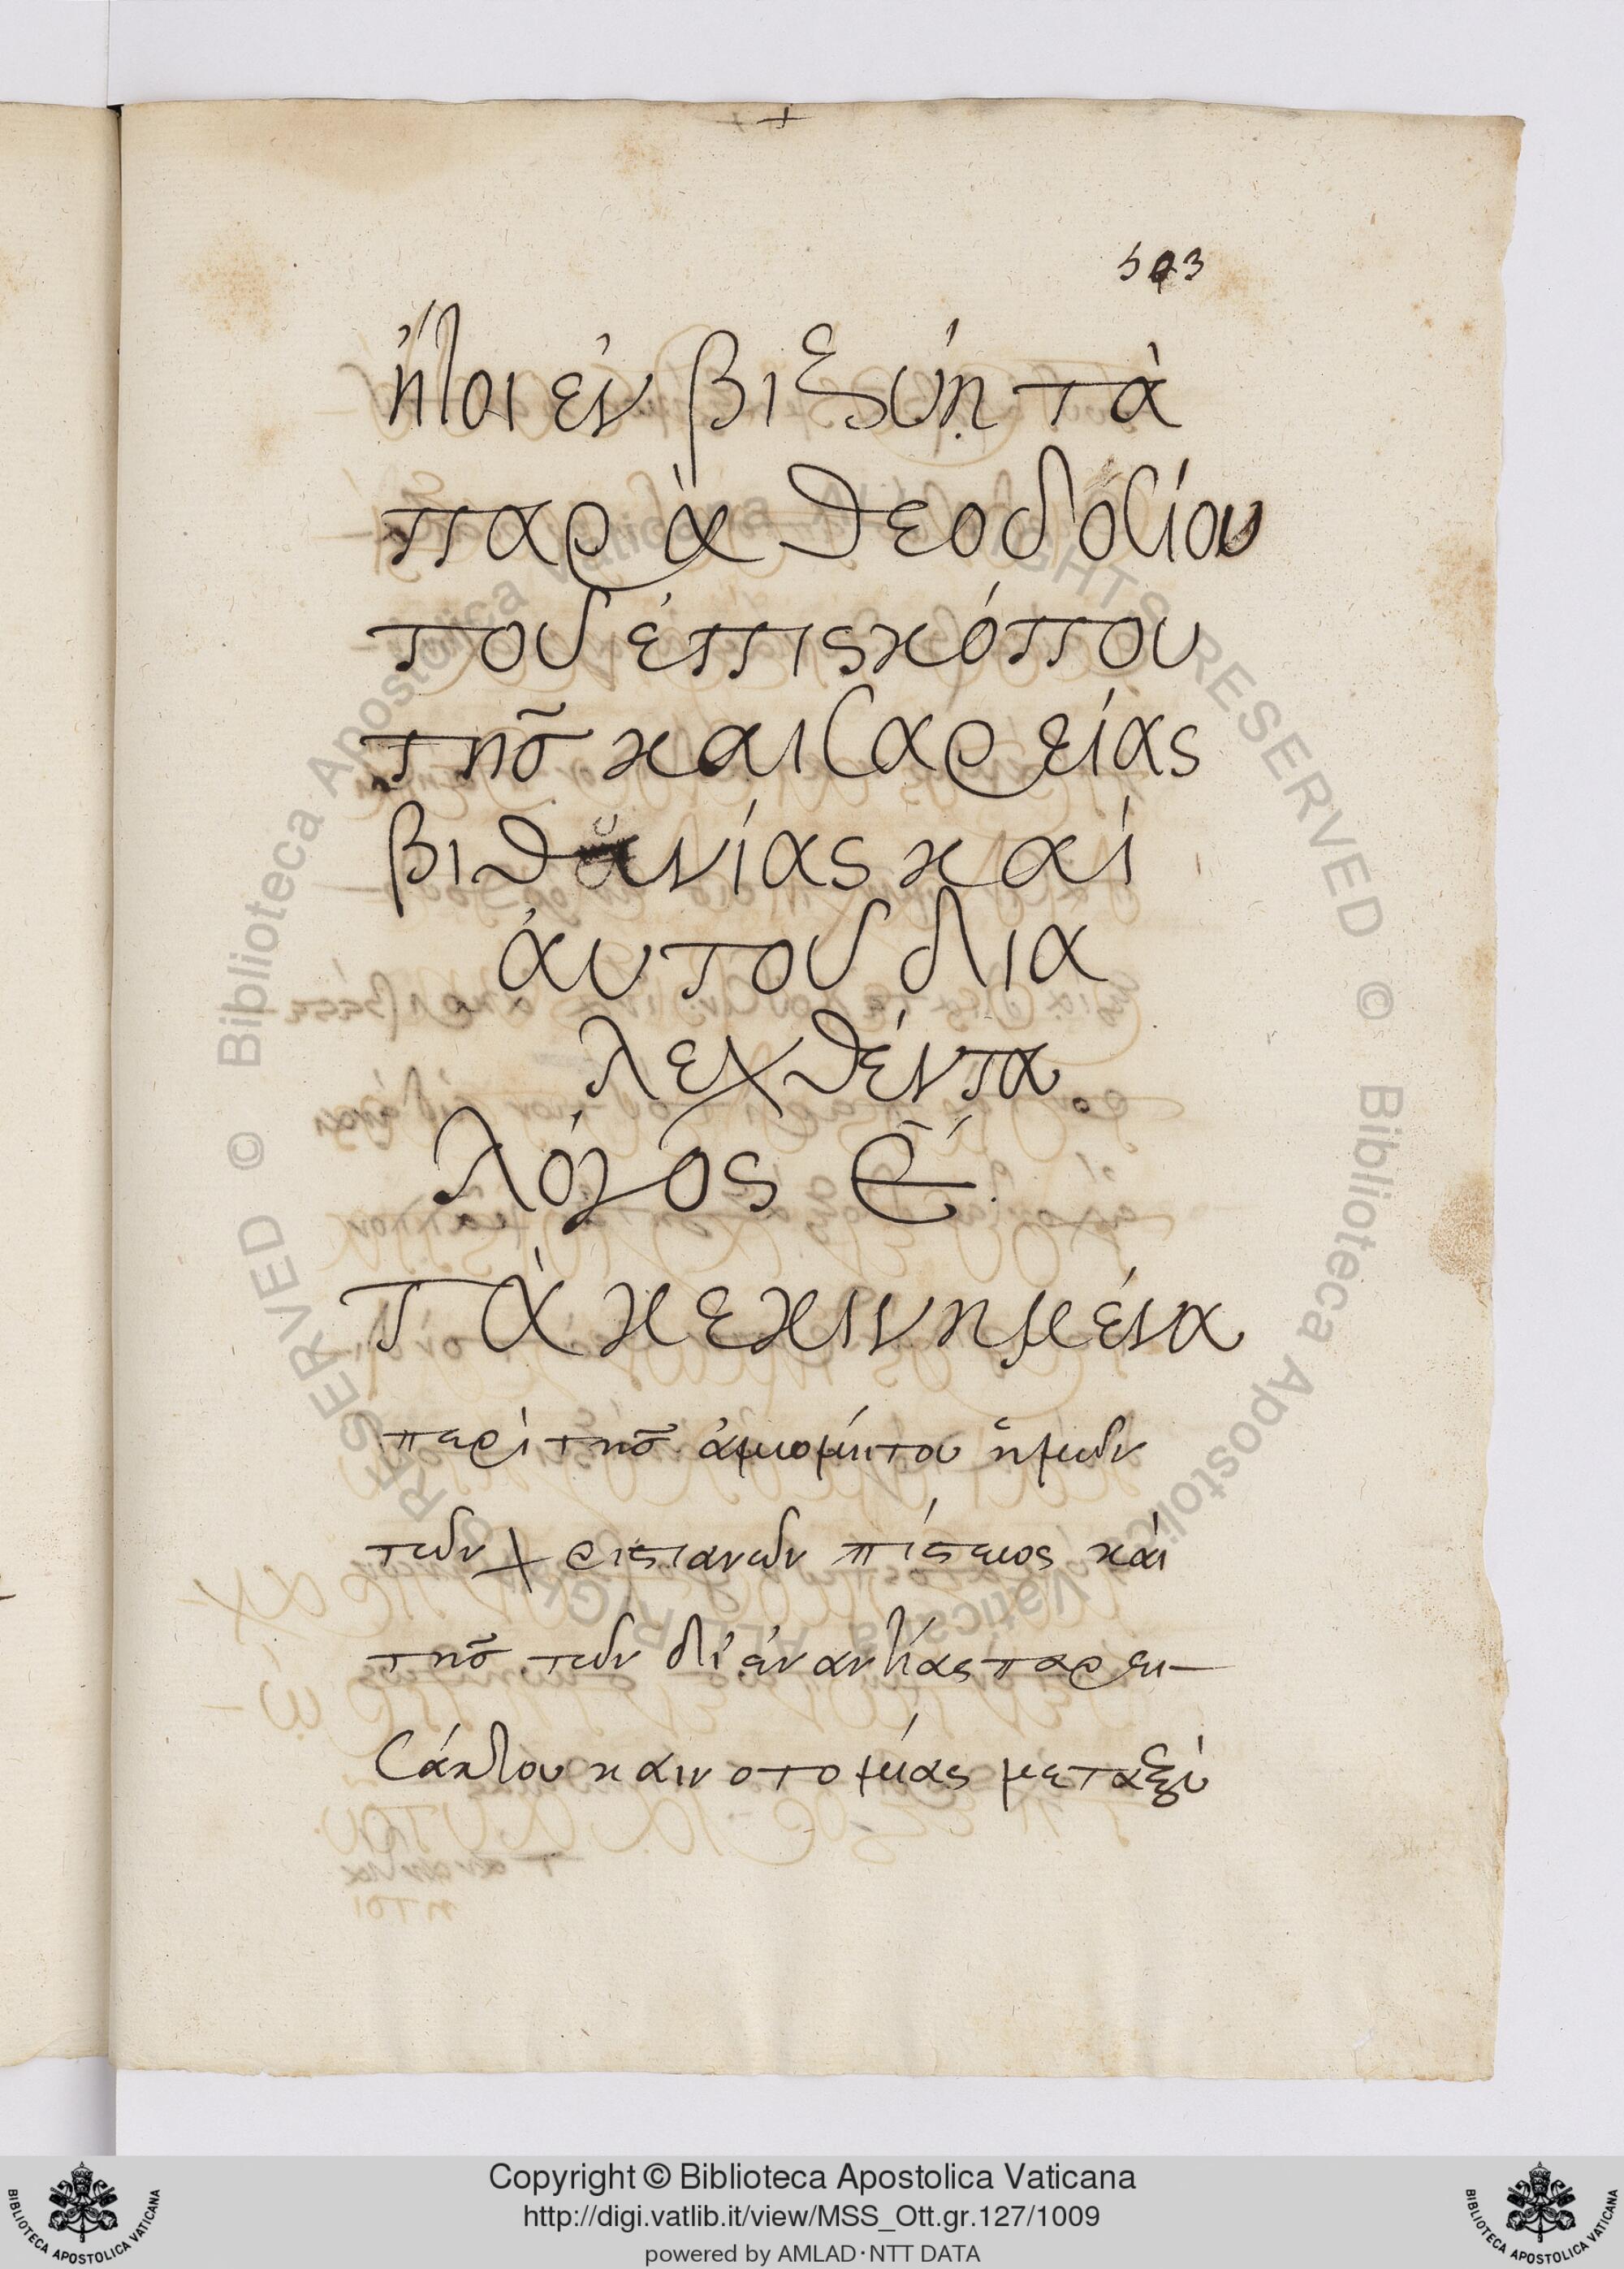 503
ἤτοι ἐν βιξύῃ τὰ
παρὰ θεοδοσίου
τοῦ ἐπισκόπου
τῆσ καισαρείας
βιθυνίας καὶ
ἀυτοῦ δια
λεχθέντα.
λόγος ε̅.
Τὰ κεκινημένα
περὶ τῆσ ἀμωμήτου ἡμῶν
τῶν χριστιανῶν πίστεως καὶ
τῆσ τῶν δι' ἐναντίας παρει-
σάκτου καινοτομίας μεταξὺ
© Biblioteca Apostolica Vaticana ALL RIGHTS RESERVED
© Biblioteca Apostolica Vaticana ALL RIGHTS RESERVED
Copyright © Biblioteca Apostolica Vaticana
http://digi.vatlib.it/view/MSS_Ott.gr.127/1009
powered by AMLAD·NTT DATA
BIBLIOTECA APOSTOLICA VATICANA
BIBLIOTECA APOSTOLICA VATICANA